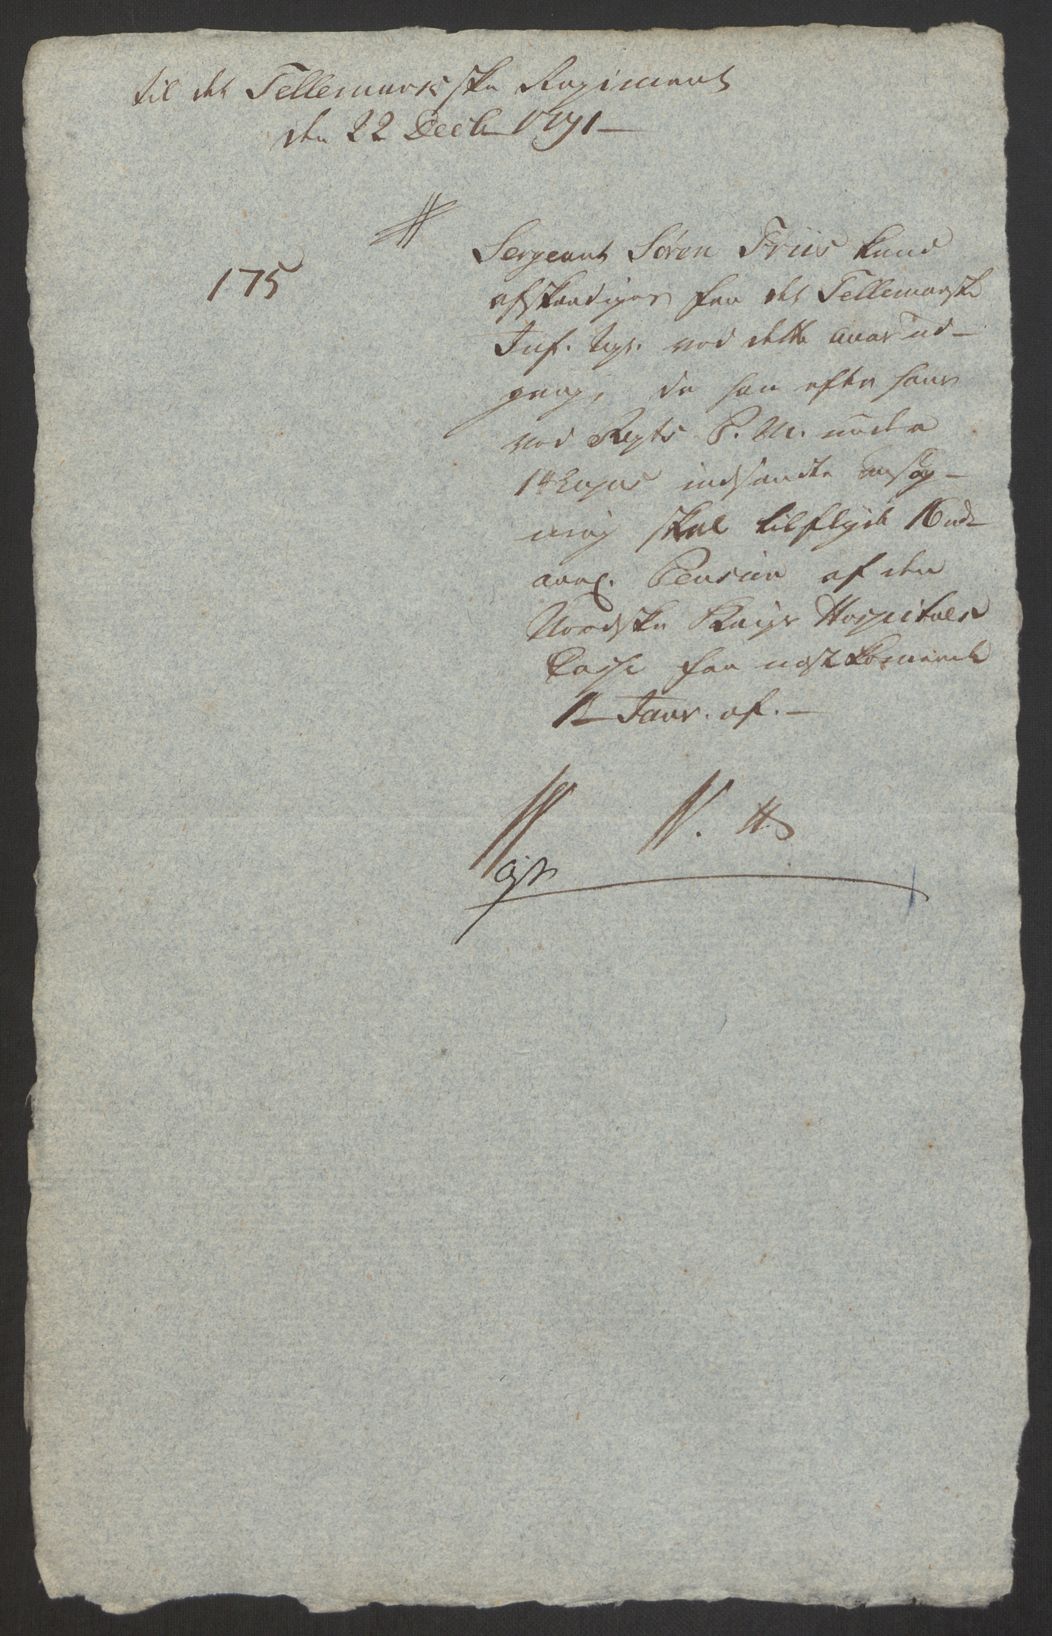 til det Tellemarkske Regiment
den 22 Decb. 1791 —
175
Sergeant Sören Friis kand
afskediges fra det Tellemarske
Inf. Rgt. ved dette aars ud-
gang, da han efter hans
ved Regts P. M. under
indsendte ansög-
ning skal tilflyde
aarl. Pension af den
Nordske Krigs Hospitals
Casse fra nestkomende
1ste Janv. af. —